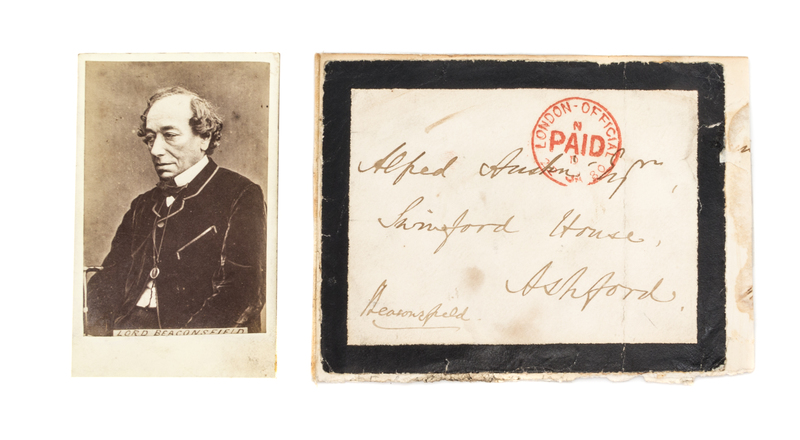 LORD BEACONSFIELD
LONDON-OFFICIAL
N
PAID
JA 80
Alfred Austin Esqre,
Swinford House,
Ashford.
Beaconsfield.